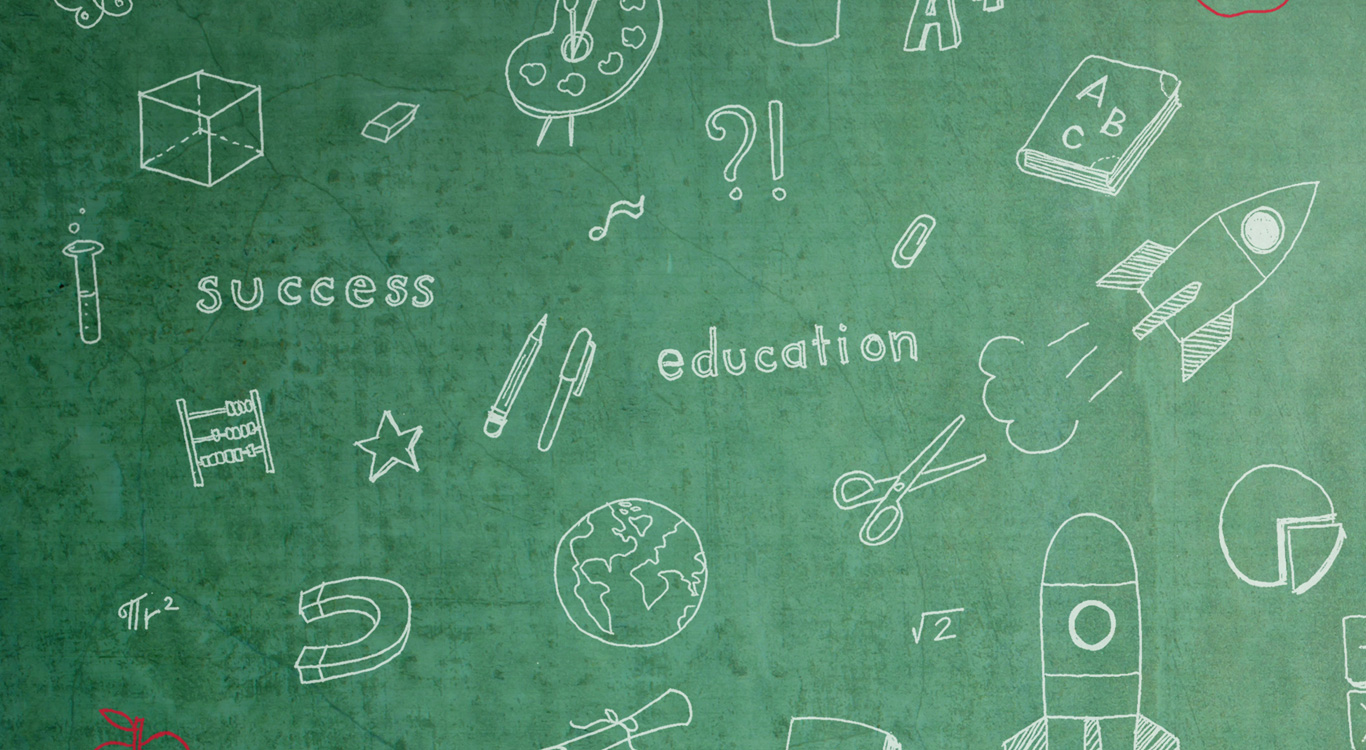 A+
?!
A
B
C
success
education
πr²
√2